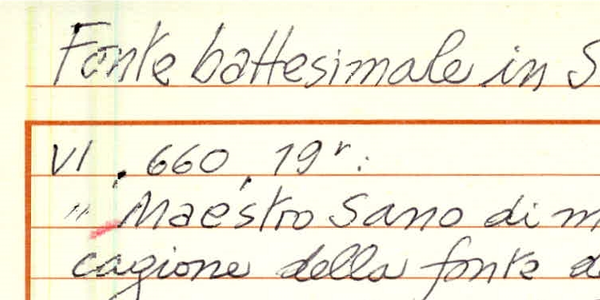 Fonte battesimale in S
VI, 660, 19r:
" Maestro Sano di m
cagione della fonte d